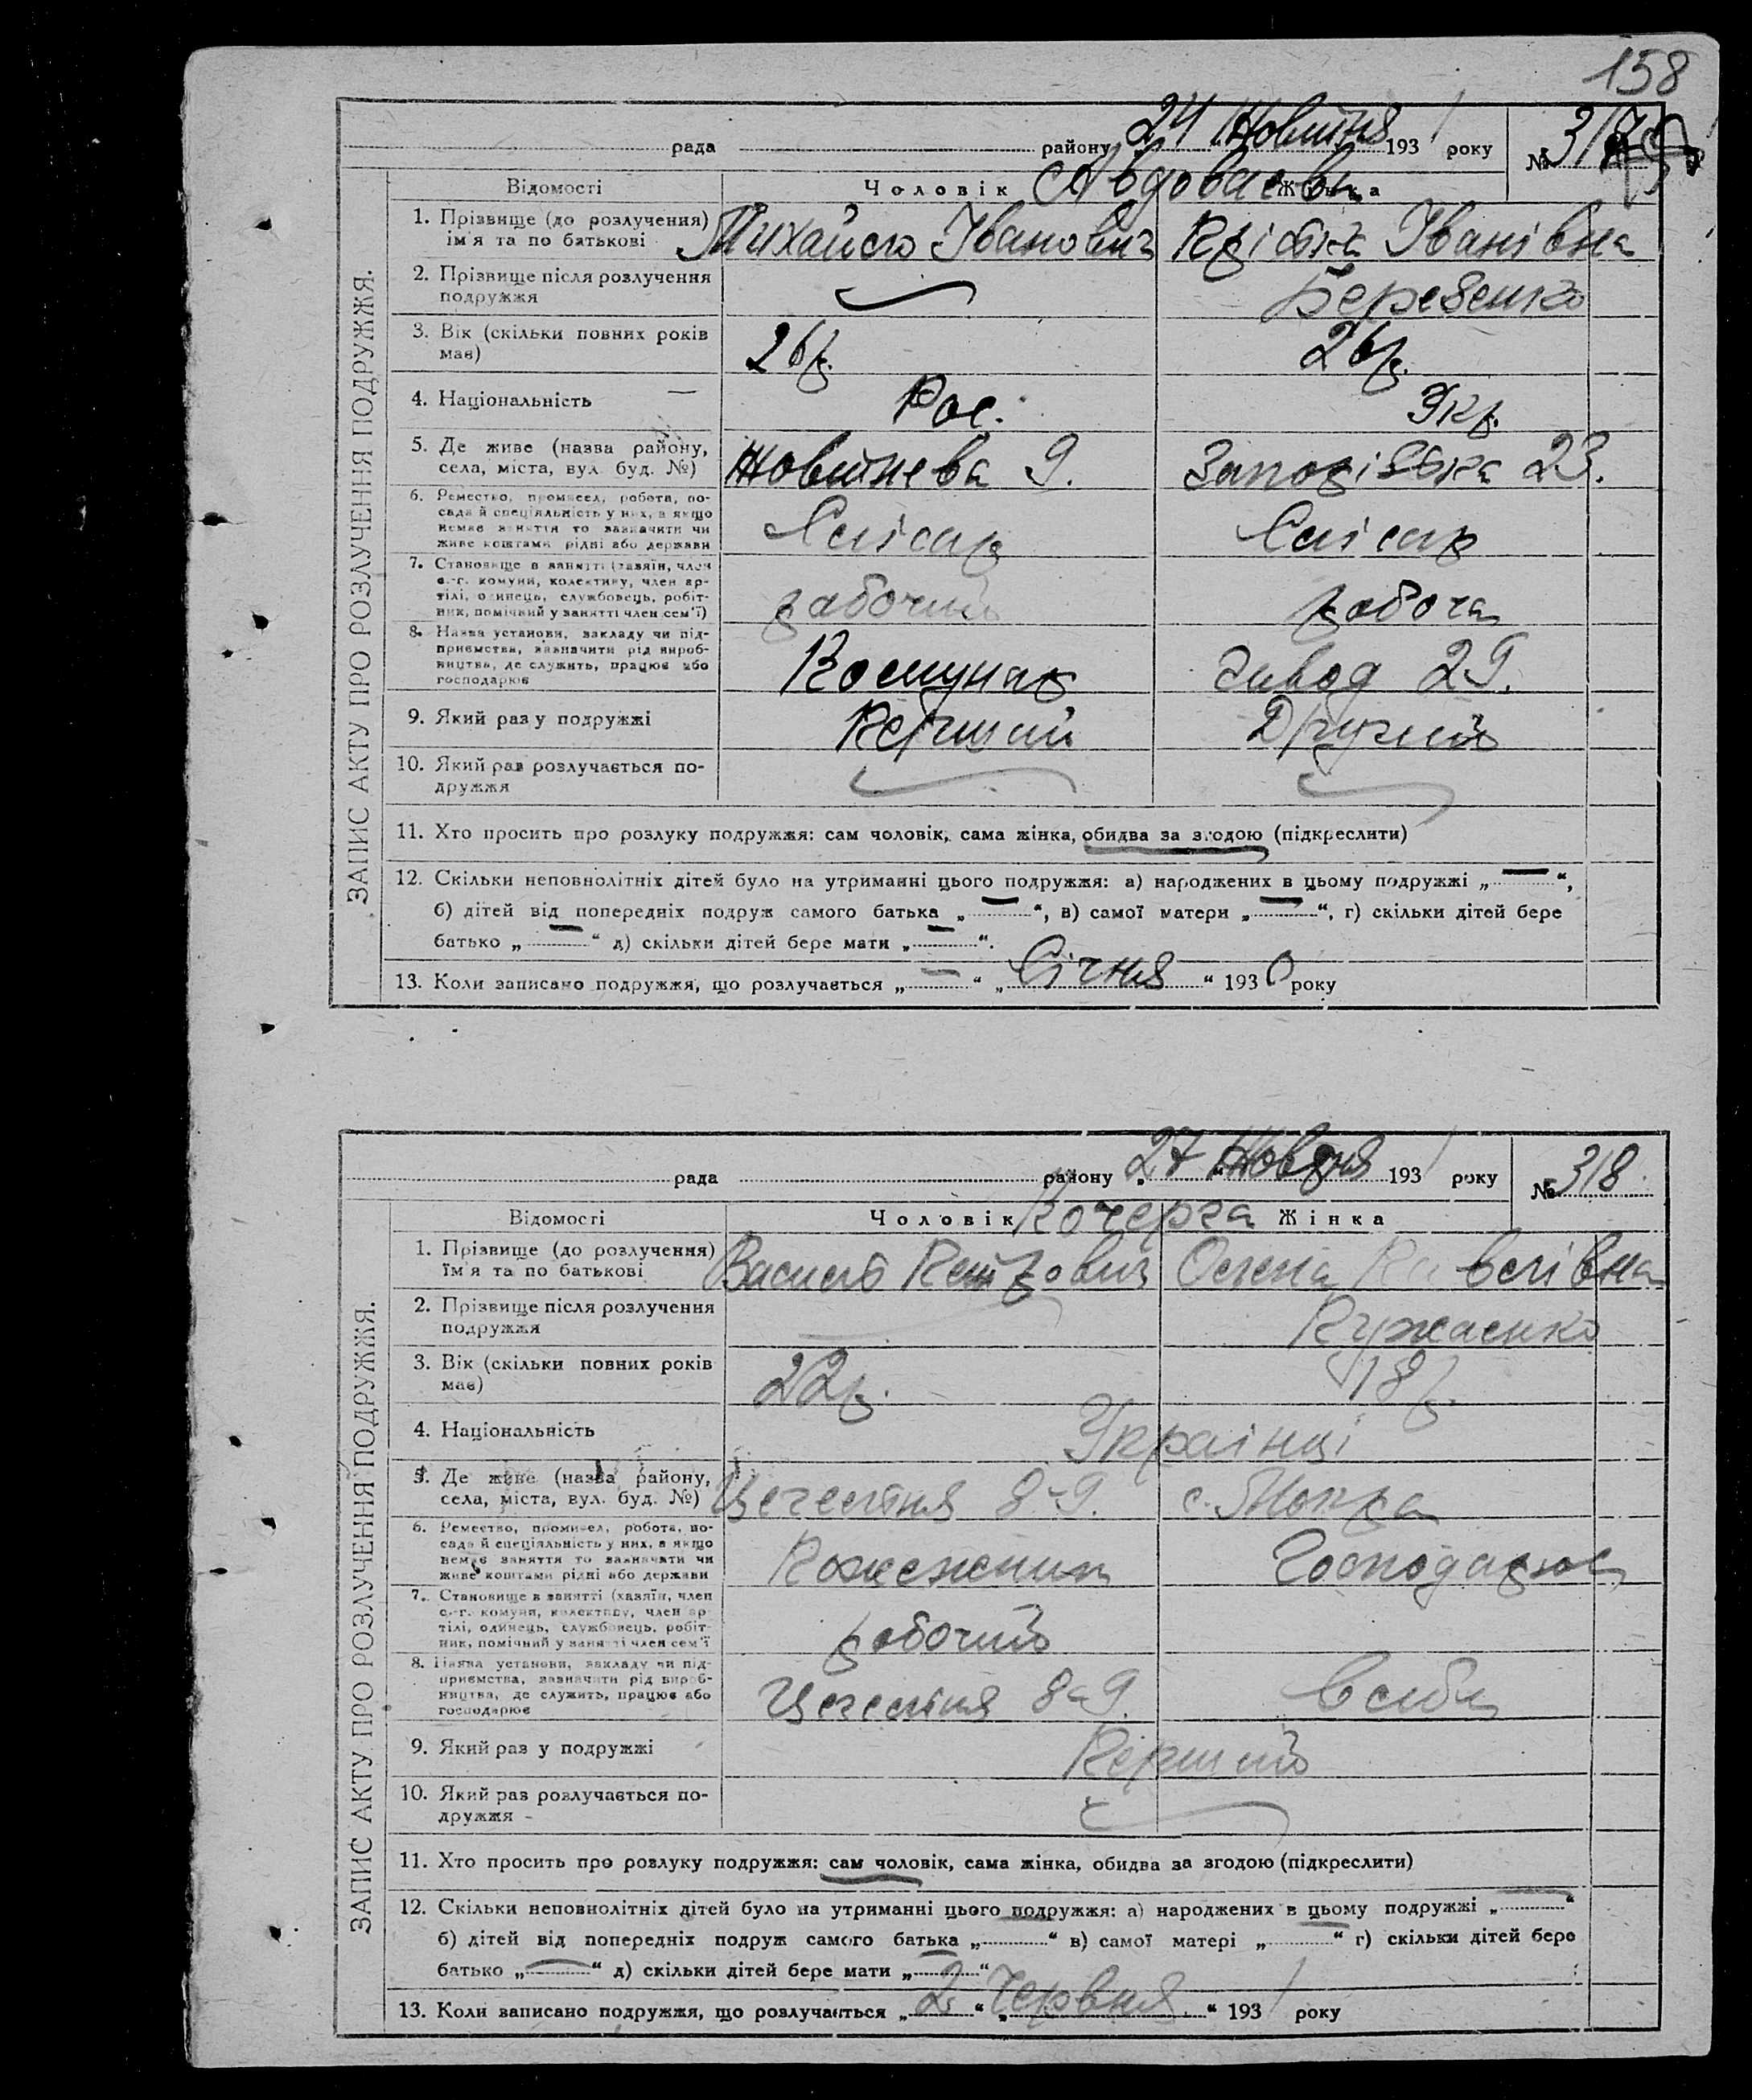 158
рада району 24 Жовтня 1931 року № 317
Відомості Чоловік Жінка
1. Прізвище (до розлучення) ім'я та по батькові Михайло Іванович Іванівна
2. Прізвище після розлучення подружжя Березенко
3. Вік (скільки повних років має) 26р. 26р.
4. Національність — Рос. Укр.
5. Де живе (назва району, села, міста, вул. буд. №) Жовтнева 9. 23.
6. Ремество, промисел, робота, по-
сада й спеціяльність у них, а якщо
немає заняття то зазначити чи
живе коштами рідні або держави Слісар Слісар
7. Становище в занятті (хазяїн, член
с.-г. комуни, колективу, член ар-
тілі, одинець, службовець, робіт-
ник, помічний у занятті член сем'ї) рабочий рабоча
8. Назва установи, закладу чи під-
приємства, зазначити рід вироб-
ництва, де служить, працює або
господарює Комунар Завод 29.
9. Який раз у подружжі Перший Другий
10. Який раз розлучається по-
дружжя
11. Хто просить про розлуку подружжя: сам чоловік, сама жінка, обидва за згодою (підкреслити)
12. Скільки неповнолітніх дітей було на утриманні цього подружжя: а) народжених в цьому подружжі „—“,
б) дітей від попередніх подруж самого батька „—“, в) самої матери „—“, г) скільки дітей бере
батько „—“ д) скільки дітей бере мати „—“.
13. Коли записано подружжя, що розлучається „—“ „Січня“ 1930 року
ЗАПИС АКТУ ПРО РОЗЛУЧЕННЯ ПОДРУЖЖЯ.
рада району „27 Жовтня 1931 року № 318
Відомості Чоловік Кочерга Жінка
1. Прізвище (до розлучення) їм'я та по батькові Василь Петрович Олена Павлівна
2. Прізвище після розлучення подружжя
3. Вік (скільки повних років має) 22р. 18р.
4. Національність Українці
5. Де живе (назва району, села, міста, вул. буд. №) 8-9. с. Мокра
6. Ремество, промисел, робота, по-
сада й спеціяльність у них, а якщо
немає заняття то зазначати чи
живе коштами рідні або держави Господарює
7. Становище в занятті (хазяїн, член
с.-г. комуни, колективу, член ар-
тілі, одинець, службовець, робіт-
ник, помічний у занятті член сем'ї рабочий
8. Назва установи, закладу чи під-
приємства, зазначити рід вироб-
ництва, де служить, працює або
господарює
9. Який раз у подружжі Перший
10. Який раз розлучається по-
дружжя -
11. Хто просить про розлуку подружжя: сам чоловік, сама жінка, обидва за згодою (підкреслити)
12. Скільки неповнолітніх дітей було на утриманні цього подружжя: а) народжених в цьому подружжі „—“
б) дітей від попередніх подруж самого батька „“ в) самої матері „“ г) скільки дітей бере
батько „—“ д) скільки дітей бере мати „“
13. Коли записано подружжя, що розлучається „2“ „Червня“ 1931 року
ЗАПИС АКТУ ПРО РОЗЛУЧЕННЯ ПОДРУЖЖЯ.